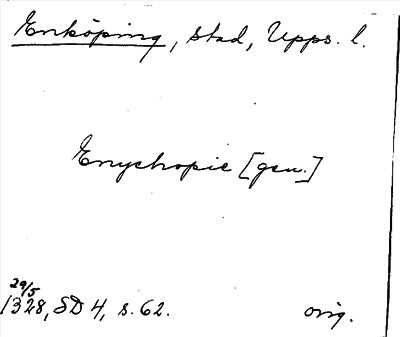 Enköping, stad, Upps. l.
Enychopie [gen.]
29/5
1328, SD 4, s. 62. orig.